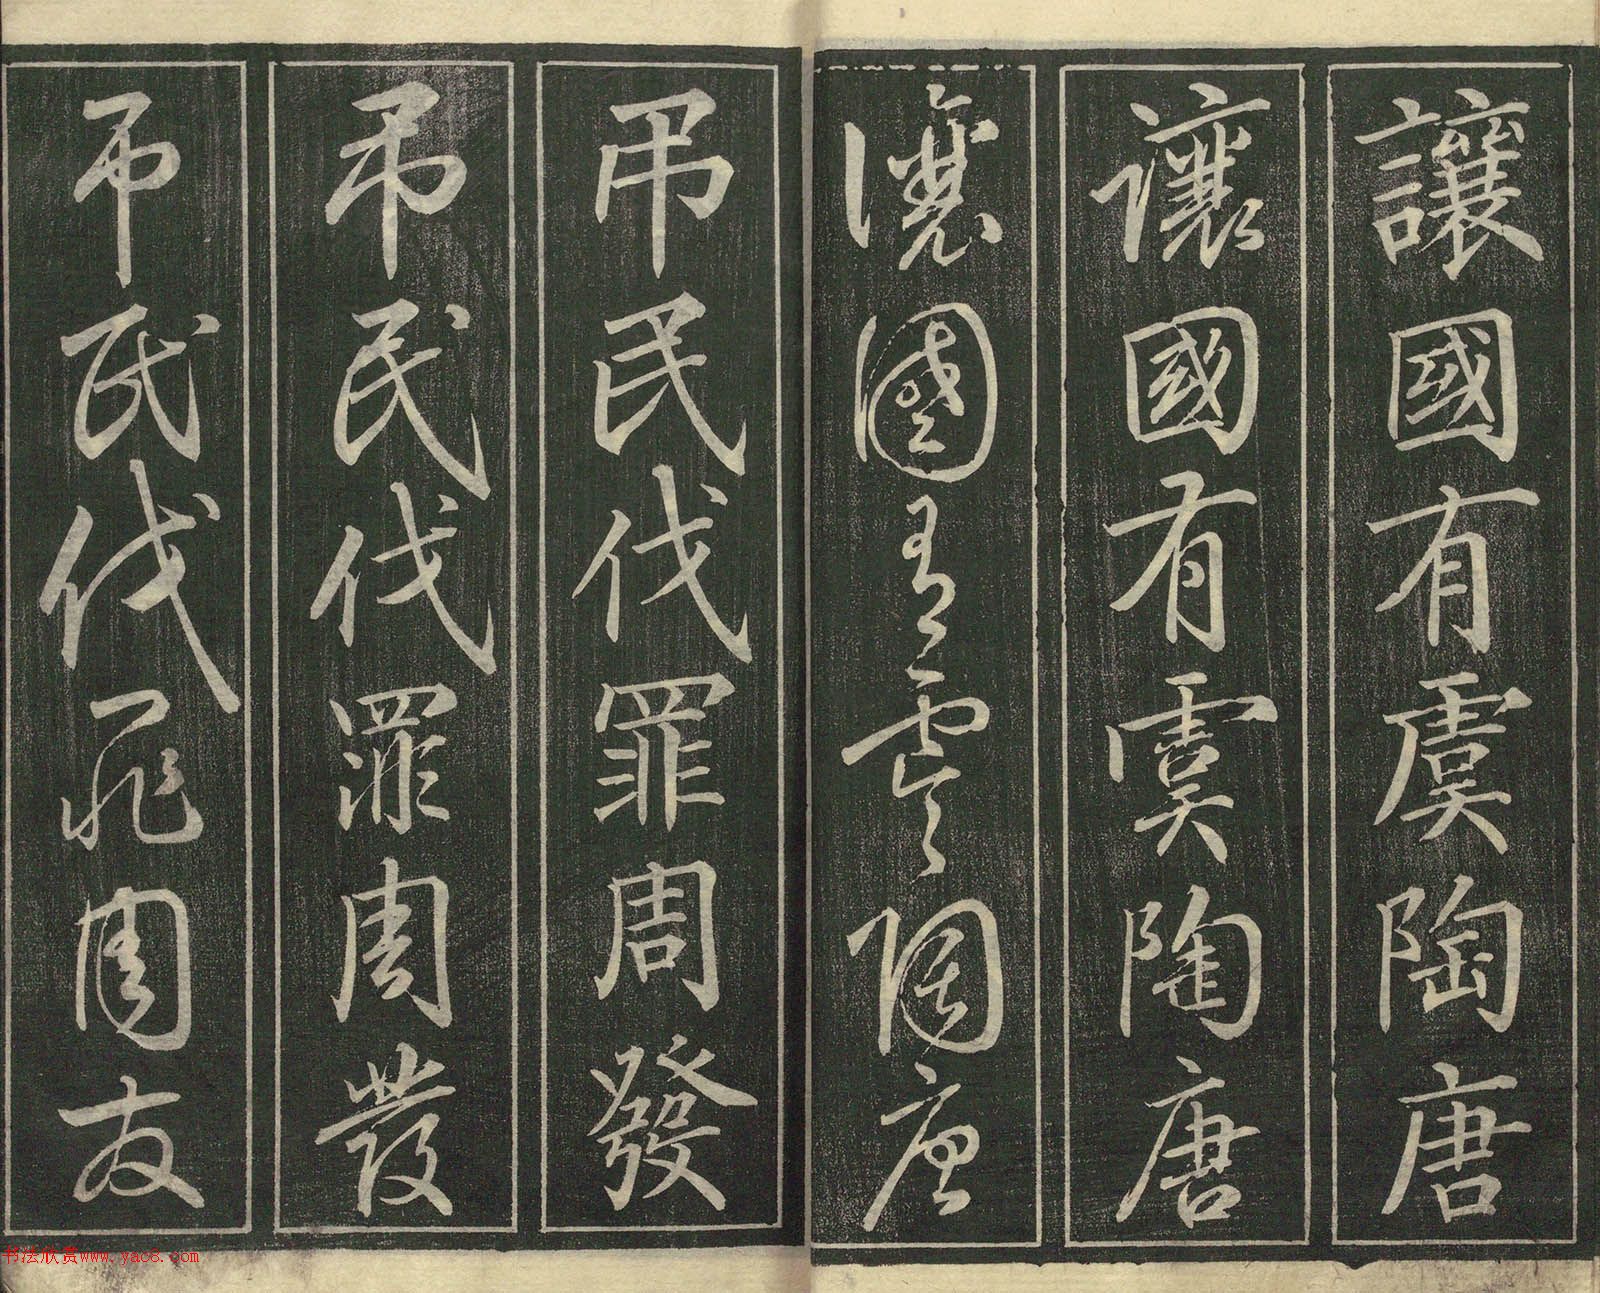 讓國有虞陶唐
讓國有虞陶唐
讓國有虞陶唐
弔民伐罪周發
弔民伐罪周發
弔民伐罪周發
书法欣赏www.yac8.com